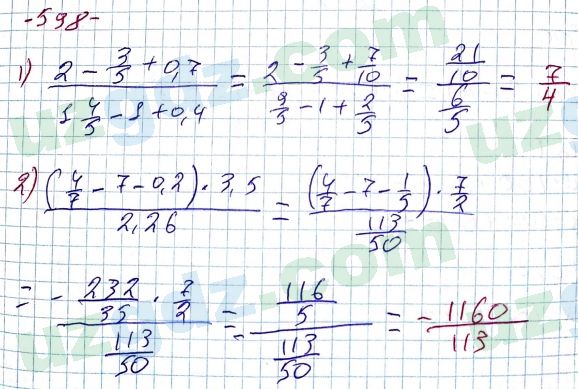 -598-
1) (2 - 3/5 + 0,7)/(1 4/5 - 1 + 0,4) = (2 - 3/5 + 7/10)/(9/5 - 1 + 2/5) = (21/10)/(6/5) = 7/4
2) ((4/7 - 7 - 0,2) · 3,5)/(2,26) = ((4/7 - 7 - 1/5) · 7/2)/(113/50)
= - (232/35 · 7/2)/(113/50) = - (116/5)/(113/50) = - 1160/113
uzgdz.com
uzgdz.com
uzgdz.com